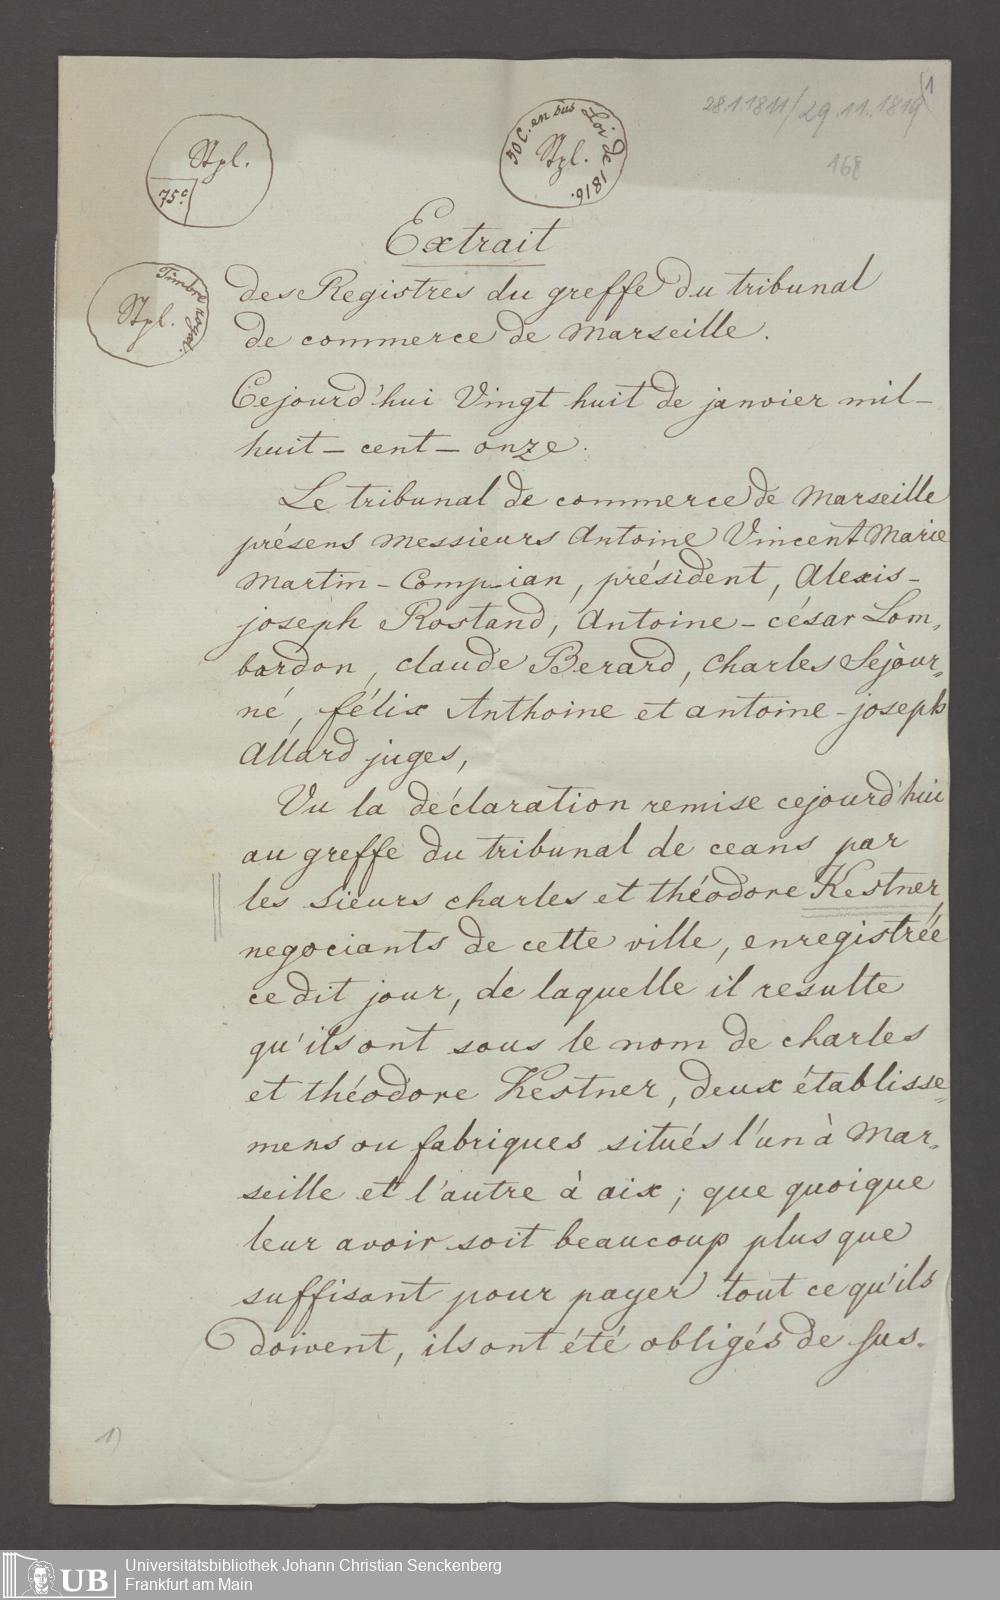 (1
28.1.1811/29.11.1819
168
Stpl.
75c
50 C. en sus Loi de 1816.
Stpl.
Timbre royal.
Stpl.
Extrait
des Registres du greffe du tribunal
de commerce de Marseille.
Cejourd'hui Vingt huit de janvier mil-
huit-cent-onze.
Le tribunal de commerce de Marseille
présens Messieurs Antoine Vincent Marie
Martin-Compian, président, Alexis-
joseph Rostand, Antoine-césar Lom„
bardon, claude Berard, Charles Sejour„
né, félix Anthoine et antoine-joseph
Allard juges,
Vu la déclaration remise cejourd'hui
au greffe du tribunal de ceans par
les sieurs charles et théodore Kestner,
negociants de cette ville, enregistrée
cedit jour, de laquelle il resulte
qu'ils ont sous le nom de charles
et théodore Kestner, deux établisse„
mens ou fabriques situés l'un à Mar„
seille et l'autre à aix; que quoique
leur avoir soit beaucoup plus que
suffisant pour payer tout ce qu'ils
doivent, ils ont été obligés de sus-
1)
UB
Universitätsbibliothek Johann Christian Senckenberg
Frankfurt am Main